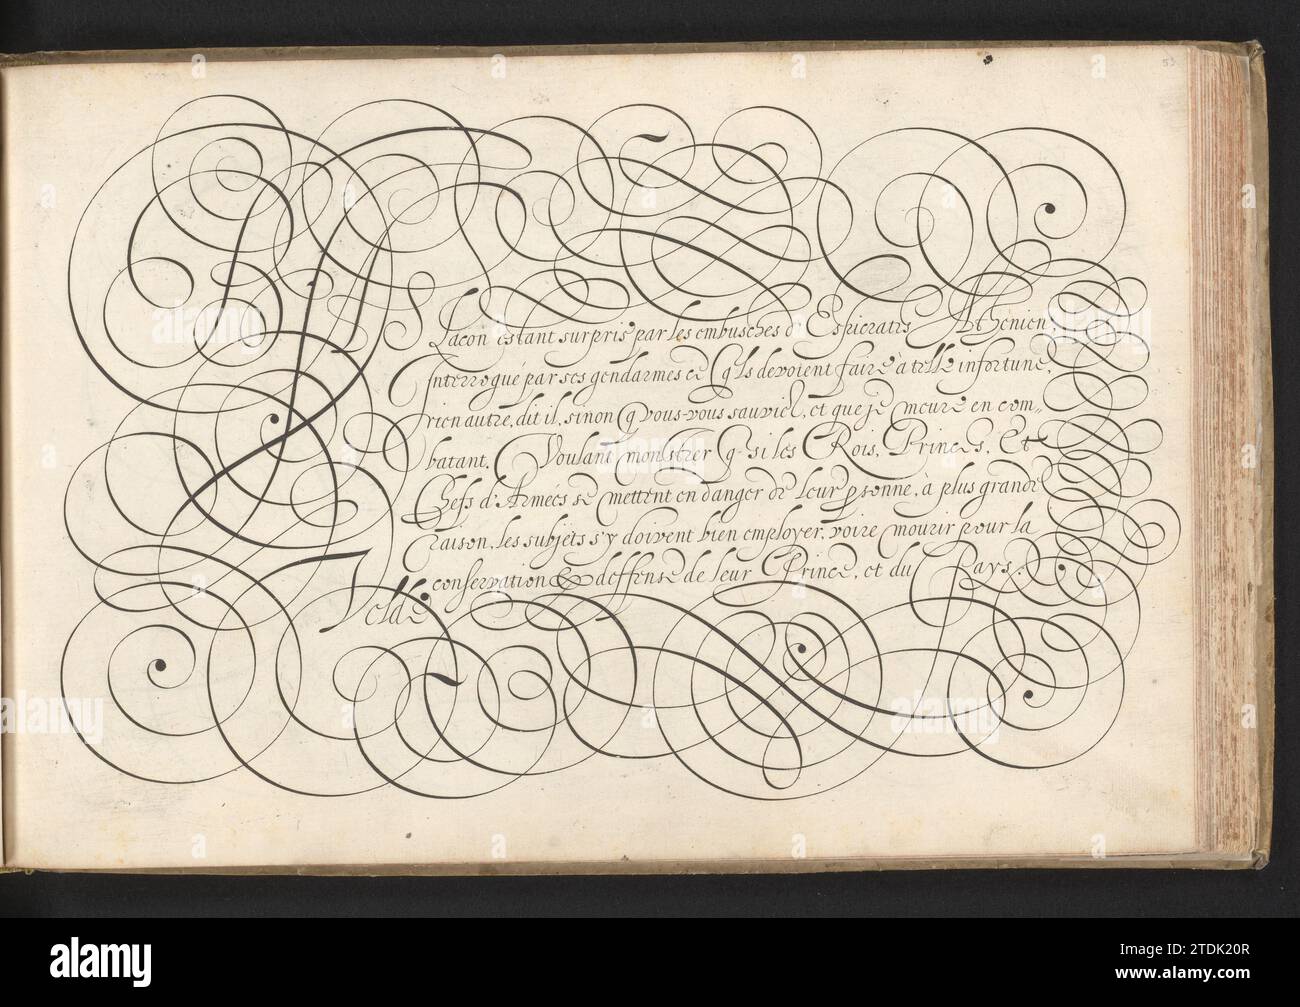 53
Slacon estant surpris par les embusches d'Espicratis Athenien,
Interrogué par ses gendarmes ce qu'ils devoient faire à telle infortune.
rien autre, dit il, sinon q vous vous sauviez, et que je meure en com„
batant. Voulant monstrer q si les Rois, Princes, Et
Chefs d'Armées se mettent en danger de leur psonne, à plus grande
raison, les subjets s'y doivent bien employer, voire mourir pour la
conservation & deffense de leur Prince, et du Pays.
Velde
alamy
Image ID: 2TDK20R
www.alamy.com